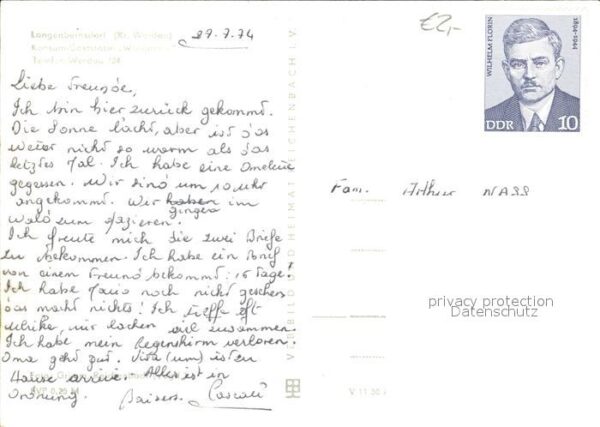 Langenbernsdorf (Kr. Werdau)
Konsum-Gaststätte
Telefon Werdau
29.7.74
Liebe Freunde,
Ich bin hier zurück gekommt.
Die Sonne lacht, aber ist das
weter nicht so warm als das
letztes Mal. Ich habe eine Omelette
gegessen. Wir sind um 10 uhr
angekommt. Wir haben im
gingen
Wald zum spazieren.
Ich freute mich die zwei Briefe
zu bekommen. Ich habe ein Brief
von einem Freund bekommt: 15 Tage!
Ich habe noch nicht gesehen
das macht nichts! Ich treffe oft
ulrike, wir lachen viel zusammen.
Ich habe mein Regenshirm verloren.
Oma geht gut. (um) ist en
Hause arrivé. Alles ist in
Ordnung. Baisers. Pascal
€2,-
WILHELM FLORIN
1894-1944
DDR 10
Fam. Arthur NASS
privacy protection
Datenschutz
VERLAG BILD UND HEIMAT REICHENBACH I. V.
EVP 0,20 M
V 11 50